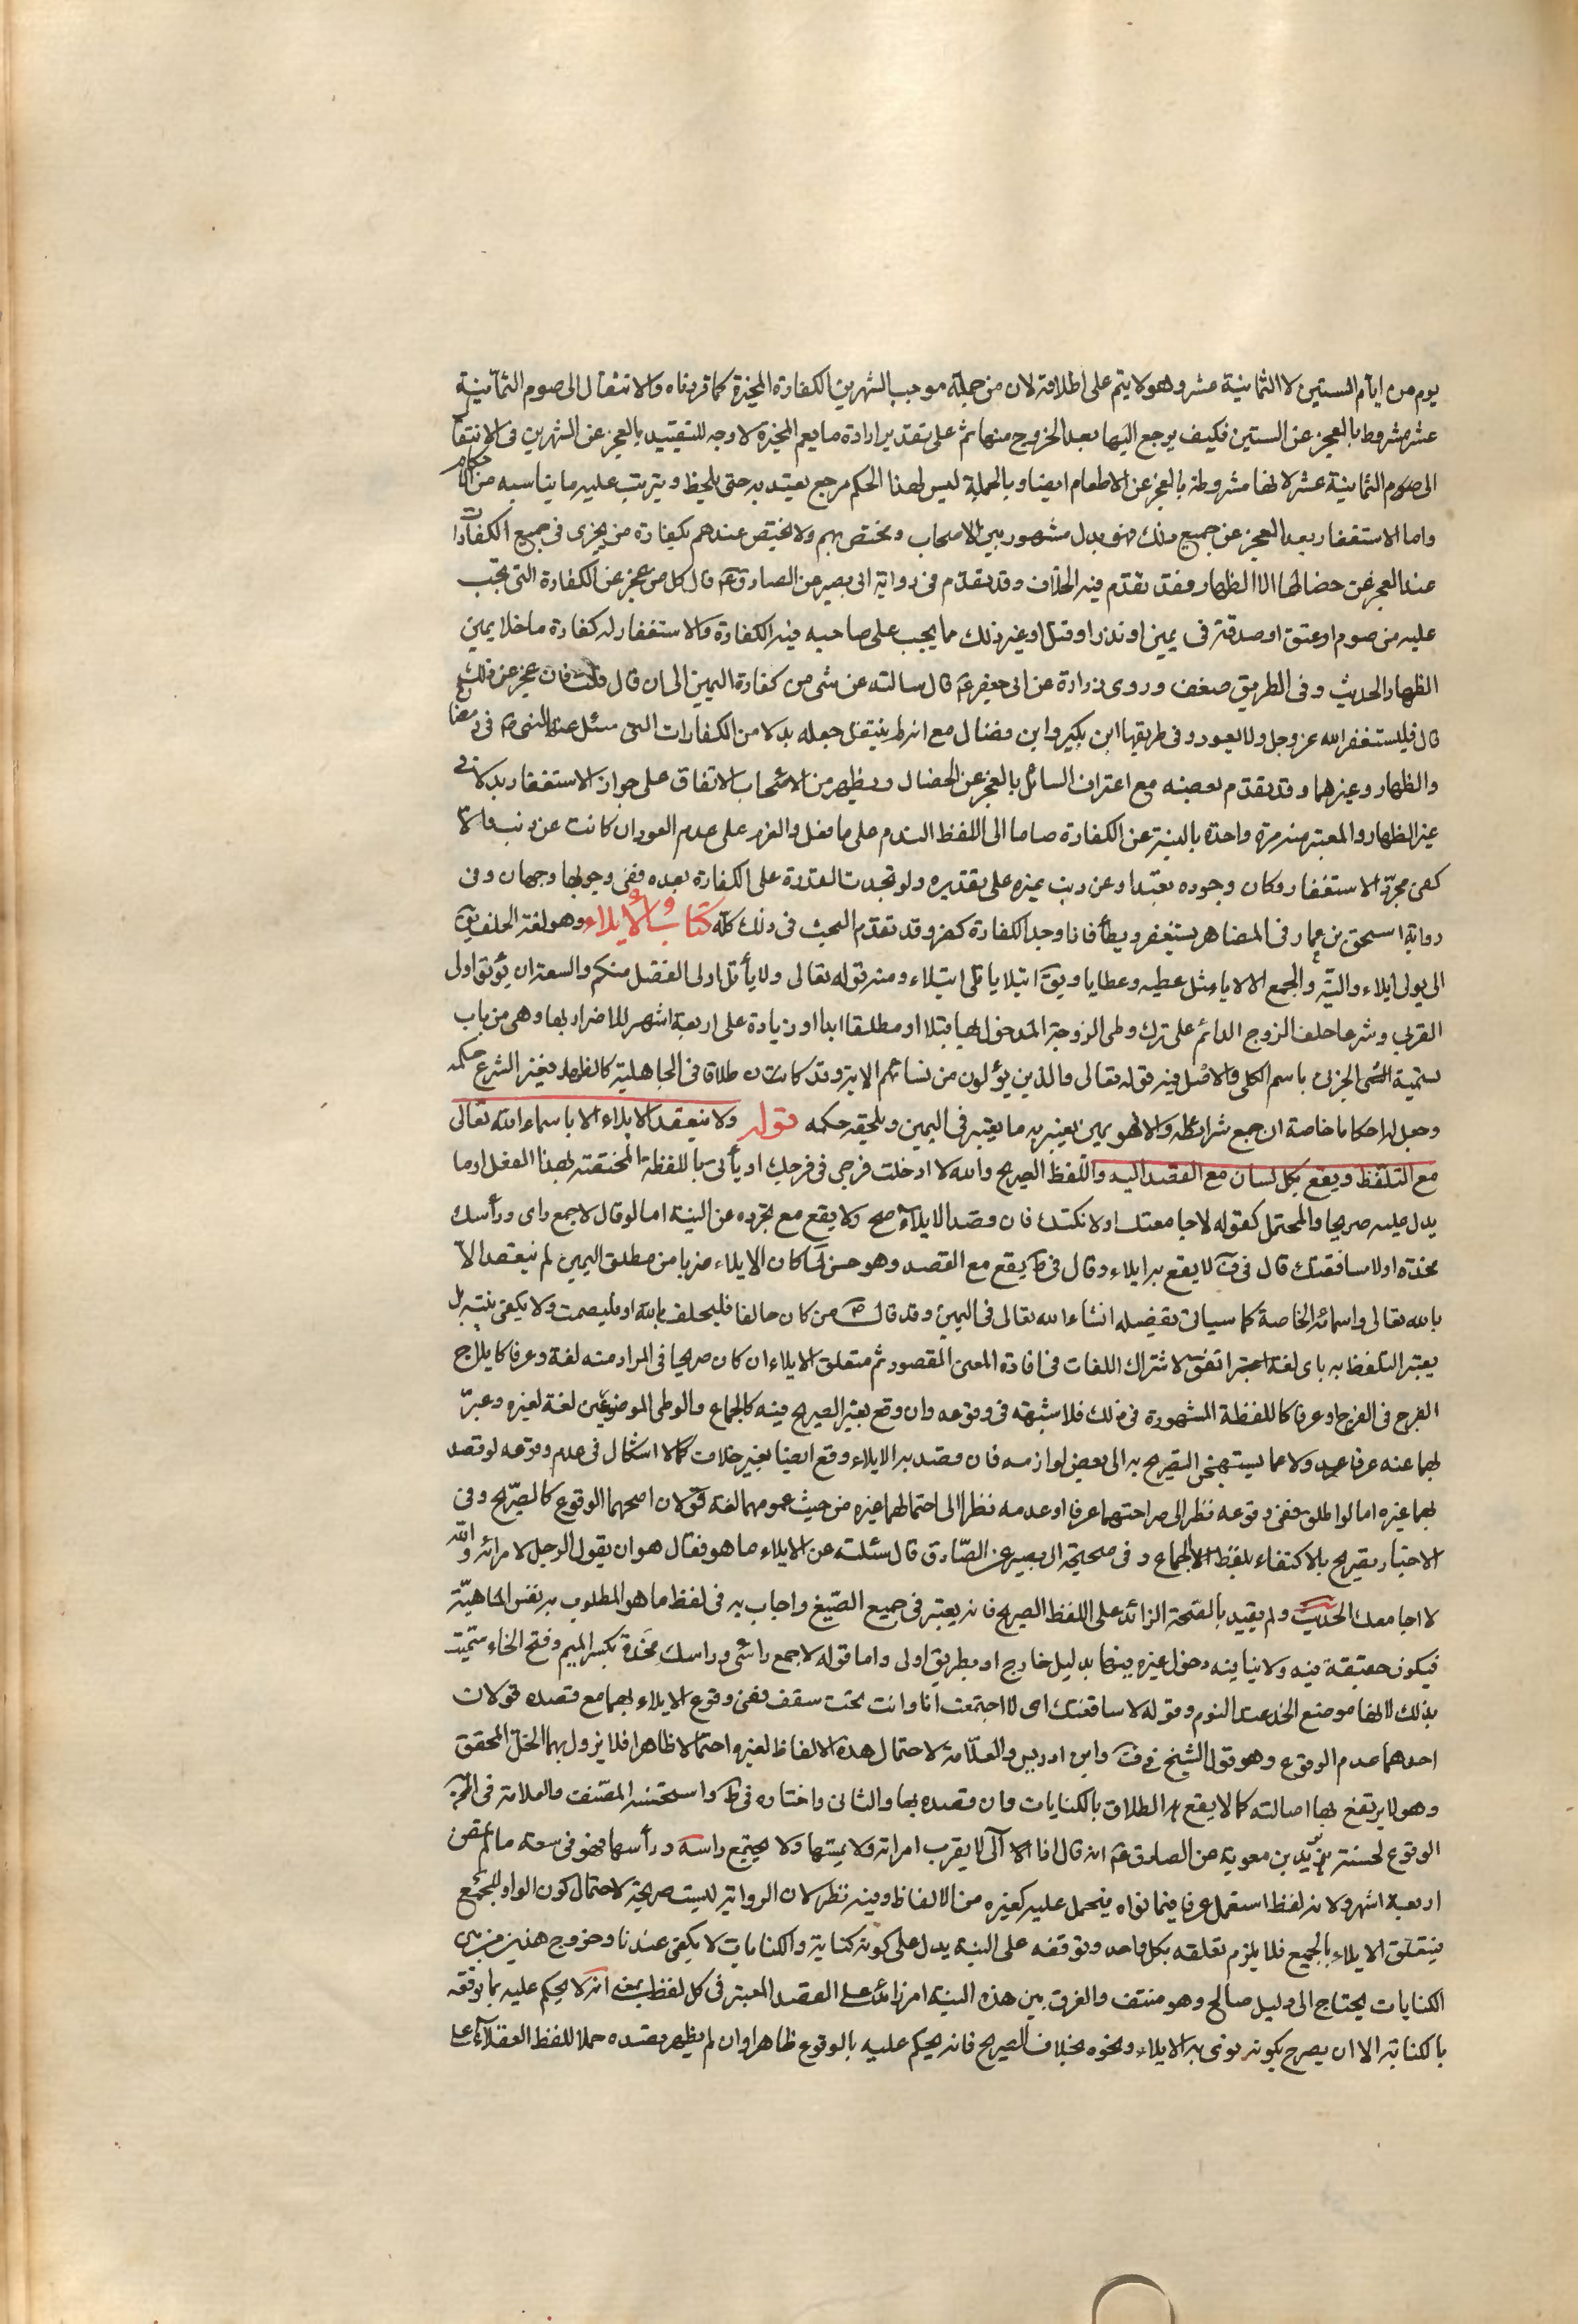 يوم من ايام الستين لا الثمانية عشر وهو لا يتم على اطلاقه لان من جملة موجب الشهرين الكفارة المخيرة كما قررناه والانتقال الى صوم الثمانية
عشر مشروط بالعجز عن الستين فكيف يرجع اليها بعد الخروج منها ثم على تقدير ارادة ما يعم المخيرة لا وجه للتقييد بالعجز عن الشهرين في الانتقال
الى صوم الثمانية عشر لانها مشروطة بالعجز عن الاطعام ايضا وبالجملة ليس لهذا الحكم مرجع يعتد به حتى يلحظ ويترتب عليه ما يناسبه من الاحكام
واما الاستغفار بعد العجز عن جميع ذلك فهو بدل مشهور بين الاصحاب ومختص بهم ولا يختص عندهم بكفارة من يجزى في جميع الكفارات
عند العجز عن خصالها الا الظهار فقد تقدم فيه الخلاف وقد تقدم في رواية ابى بصير عن الصادق ع قال كل من عجز عن الكفارة التي تجب
عليه من صوم او عتق او صدقة في يمين او نذر او قتل او غير ذلك مما يجب على صاحبه فيه الكفارة فالاستغفار له كفارة ما خلا يمين
الظهار الحديث وفي الطريق ضعف وروى زرارة عن ابى جعفر ع قال سالته عن شى من كفارة اليمين الى ان قال قلت فان عجز عن ذلك
قال فليستغفر الله عز وجل ولا يعود وفي طريقها ابن بكير وابن فضال مع انه لم ينتقل جعله بدلا من الكفارات التي سئل عنها النبي ص في رمضان
والظهار وغيرهما وقد تقدم بعضه مع اعتراف السائل بالعجز عن الخصال ويظهر من الاصحاب الاتفاق على جواز الاستغفار بدلا في
غير الظهار والمعتبر منه مرة واحدة بالنية عن الكفارة ضاما الى اللفظ الندم على ما فعل والعزم على عدم العود ان كانت عن ذنب والا
كفى مجرد الاستغفار وكان وجوده تعبدا وعن ذنب غيره على تقديره ولو تجددت القدرة على الكفارة بعده ففي وجوبها وجهان وفي
رواية اسحق بن عمار في المظاهر يستغفر ويطأ فاذا وجد الكفارة كفر وقد تقدم البحث في ذلك كله كتاب الايلاء وهو لغة الحلف يق
الى يولى ايلاء والية والجمع الالايا مثل عطية وعطايا ويق ائتلا ياتلى ائتلاء ومنه قوله تعالى ولا يأتل اولى الفضل منكم والسعة ان يؤتوا اولى
القربى وشرعا حلف الزوج الدائم على ترك وطى الزوجة المدخول بها قبلا او مطلقا ابدا او زيادة على اربعة اشهر للاضرار بها وهى من باب
تسمية الشى الجزئى باسم الكلى والاصل فيه قوله تعالى والذين يؤلون من نسائهم الاية وقد كان طلاقا في الجاهلية كالظهار فغير الشرع حكمه
وجعل له احكاما خاصة ان جمع شرائطه والا فهو يمين يعتبر به ما يعتبر في اليمين ويلحقه حكمه قوله ولا ينعقد الايلاء الا باسماء الله تعالى
مع التلفظ ويقع بكل لسان مع القصد اليه واللفظ الصريح والله لا ادخلت فرجى في فرجك او يأتى باللفظة المختصة بهذا الفعل او ما
يدل عليه صريحا والمحتمل كقوله لا جامعتك او لا نكتك فان قصد الايلاء صح ولا يقع مع تجرده عن النية اما لو قال لا جمع راى ورأسك
مخدة او لا ساقفتك قال في ف لا يقع به ايلاء وقال في ط يقع مع القصد وهو حسن لما كان الايلاء ضربا من مطلق اليمين لم ينعقد الا
بالله تعالى واسمائه الخاصة كما سياتى تفصيله انشاء الله تعالى في اليمين وقد قال ص من كان حالفا فليحلف بالله او ليصمت ولا يكفى نيته بل
يعتبر التلفظ به باى لغة اتفق لاشتراك اللغات في افادة المعنى المقصود ثم متعلق الايلاء ان كان صريحا في المراد منه لغة وعرفا كايلاج
الفرج في الفرج او عرفا كاللفظة المشهورة في ذلك فلا شبهة في وقوعه وان وقع بغير الصريح فيه كالجماع والوطى الموضوعين لغة لغيره وعبر
بهما عنه عرفا عدولا عما يستهجن التصريح به الى بعض لوازمه فان قصد به الايلاء وقع ايضا بغير خلاف كما لا اشكال في عدم وقوعه لو قصد
بهما غيره اما لو اطلق ففى وقوعه نظرا الى صراحتهما عرفا او عدمه نظرا الى احتمالهما غيره من حيث عمومهما لغة قولان اصحهما الوقوع كالصريح وفي
الاخبار تصريح بالاكتفاء بلفظ الجماع وفي صحيحة ابى بصير عن الصادق قال سئلته عن الايلاء ما هو فقال هو ان يقول الرجل لامرأته والله
لا اجامعك الحديث ولم يقيد بالقصد الزائد على اللفظ الصريح فانه يعتبر في جميع الصيغ واجاب به في لفظ ما هو المطلوب به نفس الماهية
فيكون حقيقة فيه ولا ينافيه دخول غيره فيها بدليل خارج او بطريق اولى واما قوله لا جمع راسى وراسك مخدة بكسر الميم وفتح الخاء سميت
بذلك لانها موضع الخد عند النوم وقوله لا ساقفتك اى لا اجتمعت انا وانت تحت سقف ففى وقوع الايلاء بهما مع قصده قولان
احدهما عدم الوقوع وهو قول الشيخ في ف وابن ادريس والعلامة لاحتمال هذه الالفاظ لغيره احتمالا ظاهرا فلا يزول بهما الحل المحقق
وهو لا يرتفع بها اصالته كما لا يقع الطلاق بالكنايات وان قصده بها والثانى واختاره في ط واستحسنه المصنف والعلامة في التحرير
الوقوع لحسنة بريد بن معوية عن الصادق ع انه قال اذا الا آلى لا يقرب امراته ولا يمسها ولا يجتمع راسه ورأسها فهو في سعة ما لم تمض
اربعة اشهر ولانه لفظ استعمل عرفا فيما نواه فيحمل عليه كغيره من الالفاظ وفيه نظر لان الرواية ليست صريحة لاحتمال كون الواو للجمع
فيتعلق الايلاء بالجميع فلا يلزم تعلقه بكل واحد وتوقفه على النية يدل على كونه كناية والكنايات لا يكفى عندنا وخروج هذين من بين
الكنايات يحتاج الى دليل صالح وهو منتف والفرق بين هذه النية امر زائد على القصد المعتبر في كل لفظ بمعنى انه لا يحكم عليه بما يوقعه
بالكناية الا ان يصرح بكونه نوى به الايلاء ونحوه بخلاف الصريح فانه يحكم عليه بالوقوع ظاهرا وان لم يظهر قصده حملا للفظ العقلاء على